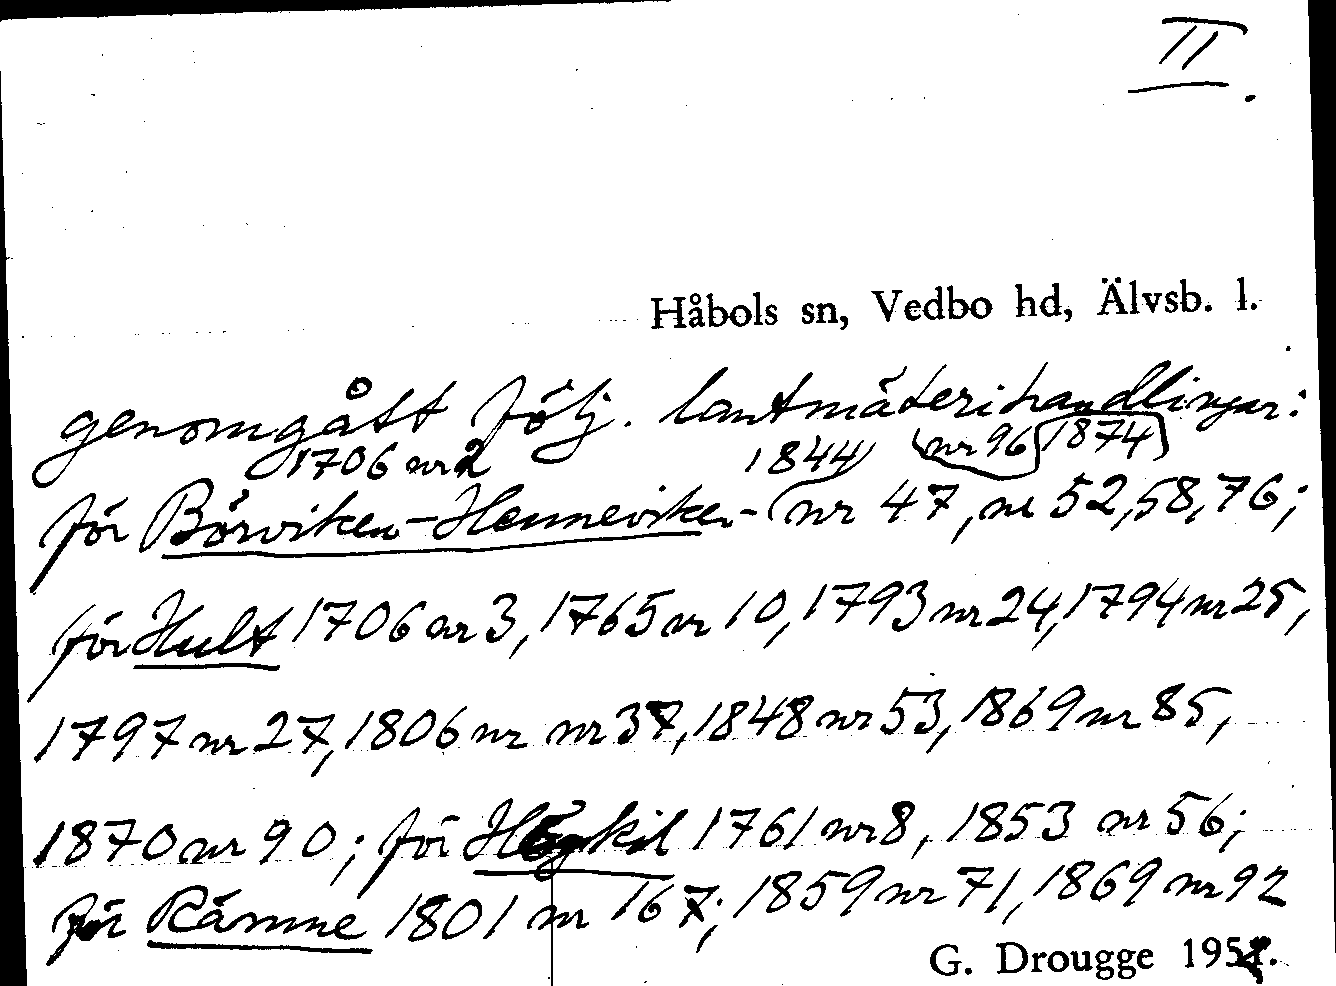 II.
Håbols sn, Vedbo hd, Älvsb. l.
genomgått följ. lantmäterihandlingar:
1706 nr 2 1844 nr 96 1874
för Börviken-Henneviken- nr 47, nr 52, 58, 76;
för Hult 1706 nr 3, 1765 nr 10, 1793 nr 24, 1794 nr 25,
1797 nr 27, 1806 nr nr 37, 1848 nr 53, 1869 nr 85,
1870 nr 90; för Högkil 1761 nr 8, 1853 nr 56;
för Rämne 1801 nr 167; 1859 nr 71, 1869 nr 92
G. Drougge